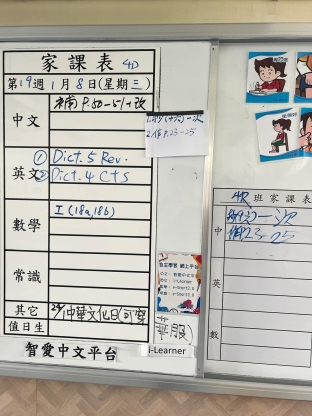 家課表 4D
第19週1月8日(星期三)
中文
補P.50-51+改
英文
① Dict.5 Rev.
② Dict.4 C+S
數學
I (18a,18b)
常識
其它
24/1中華文化日(可穿
值日生
智愛中文平台
i-Learner
2.作P.23-25
自主學習 網上平台
4D班家課表
中
一次
作P.23-25
英
數